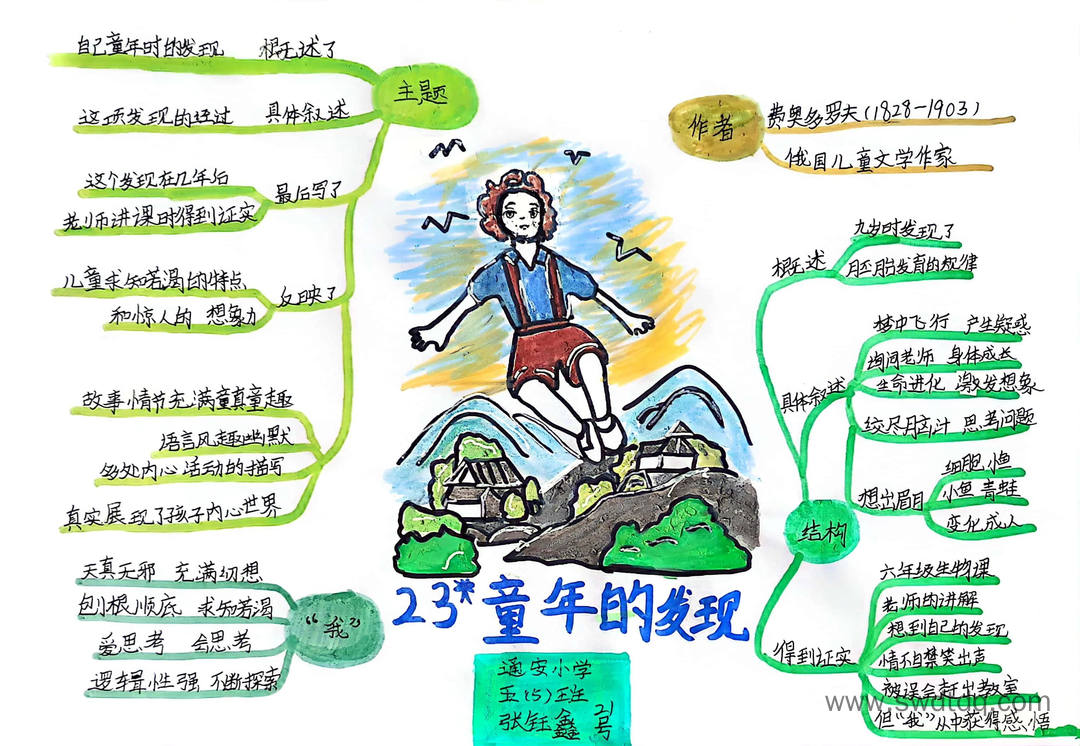 自己童年时的发现 概述了
主题
这项发现的经过 具体叙述
这个发现在几年后
最后写了
老师讲课时得到证实
儿童求知若渴的特点
反映了
和惊人的 想象力
故事情节充满童真童趣
语言风趣幽默
多处内心活动的描写
真实展现了孩子内心世界
天真无邪 充满幻想
刨根顺底 求知若渴
"我"
爱思考 会思考
逻辑性强 不断探索
23*童年的发现
通安小学
五(5)班
张钰鑫 21号
作者
费奥多罗夫(1828-1903)
俄国儿童文学作家
结构
概述
九岁时发现了
胚胎发育的规律
具体叙述
梦中飞行 产生疑惑
询问老师 身体成长
生命进化 激发想象
绞尽脑汁 思考问题
想出眉目
细胞 鱼
小鱼 青蛙
变化成人
得到证实
六年级生物课
老师的讲解
想到自己的发现
情不自禁笑出声
被误会赶出教室
但"我"从中获得感悟